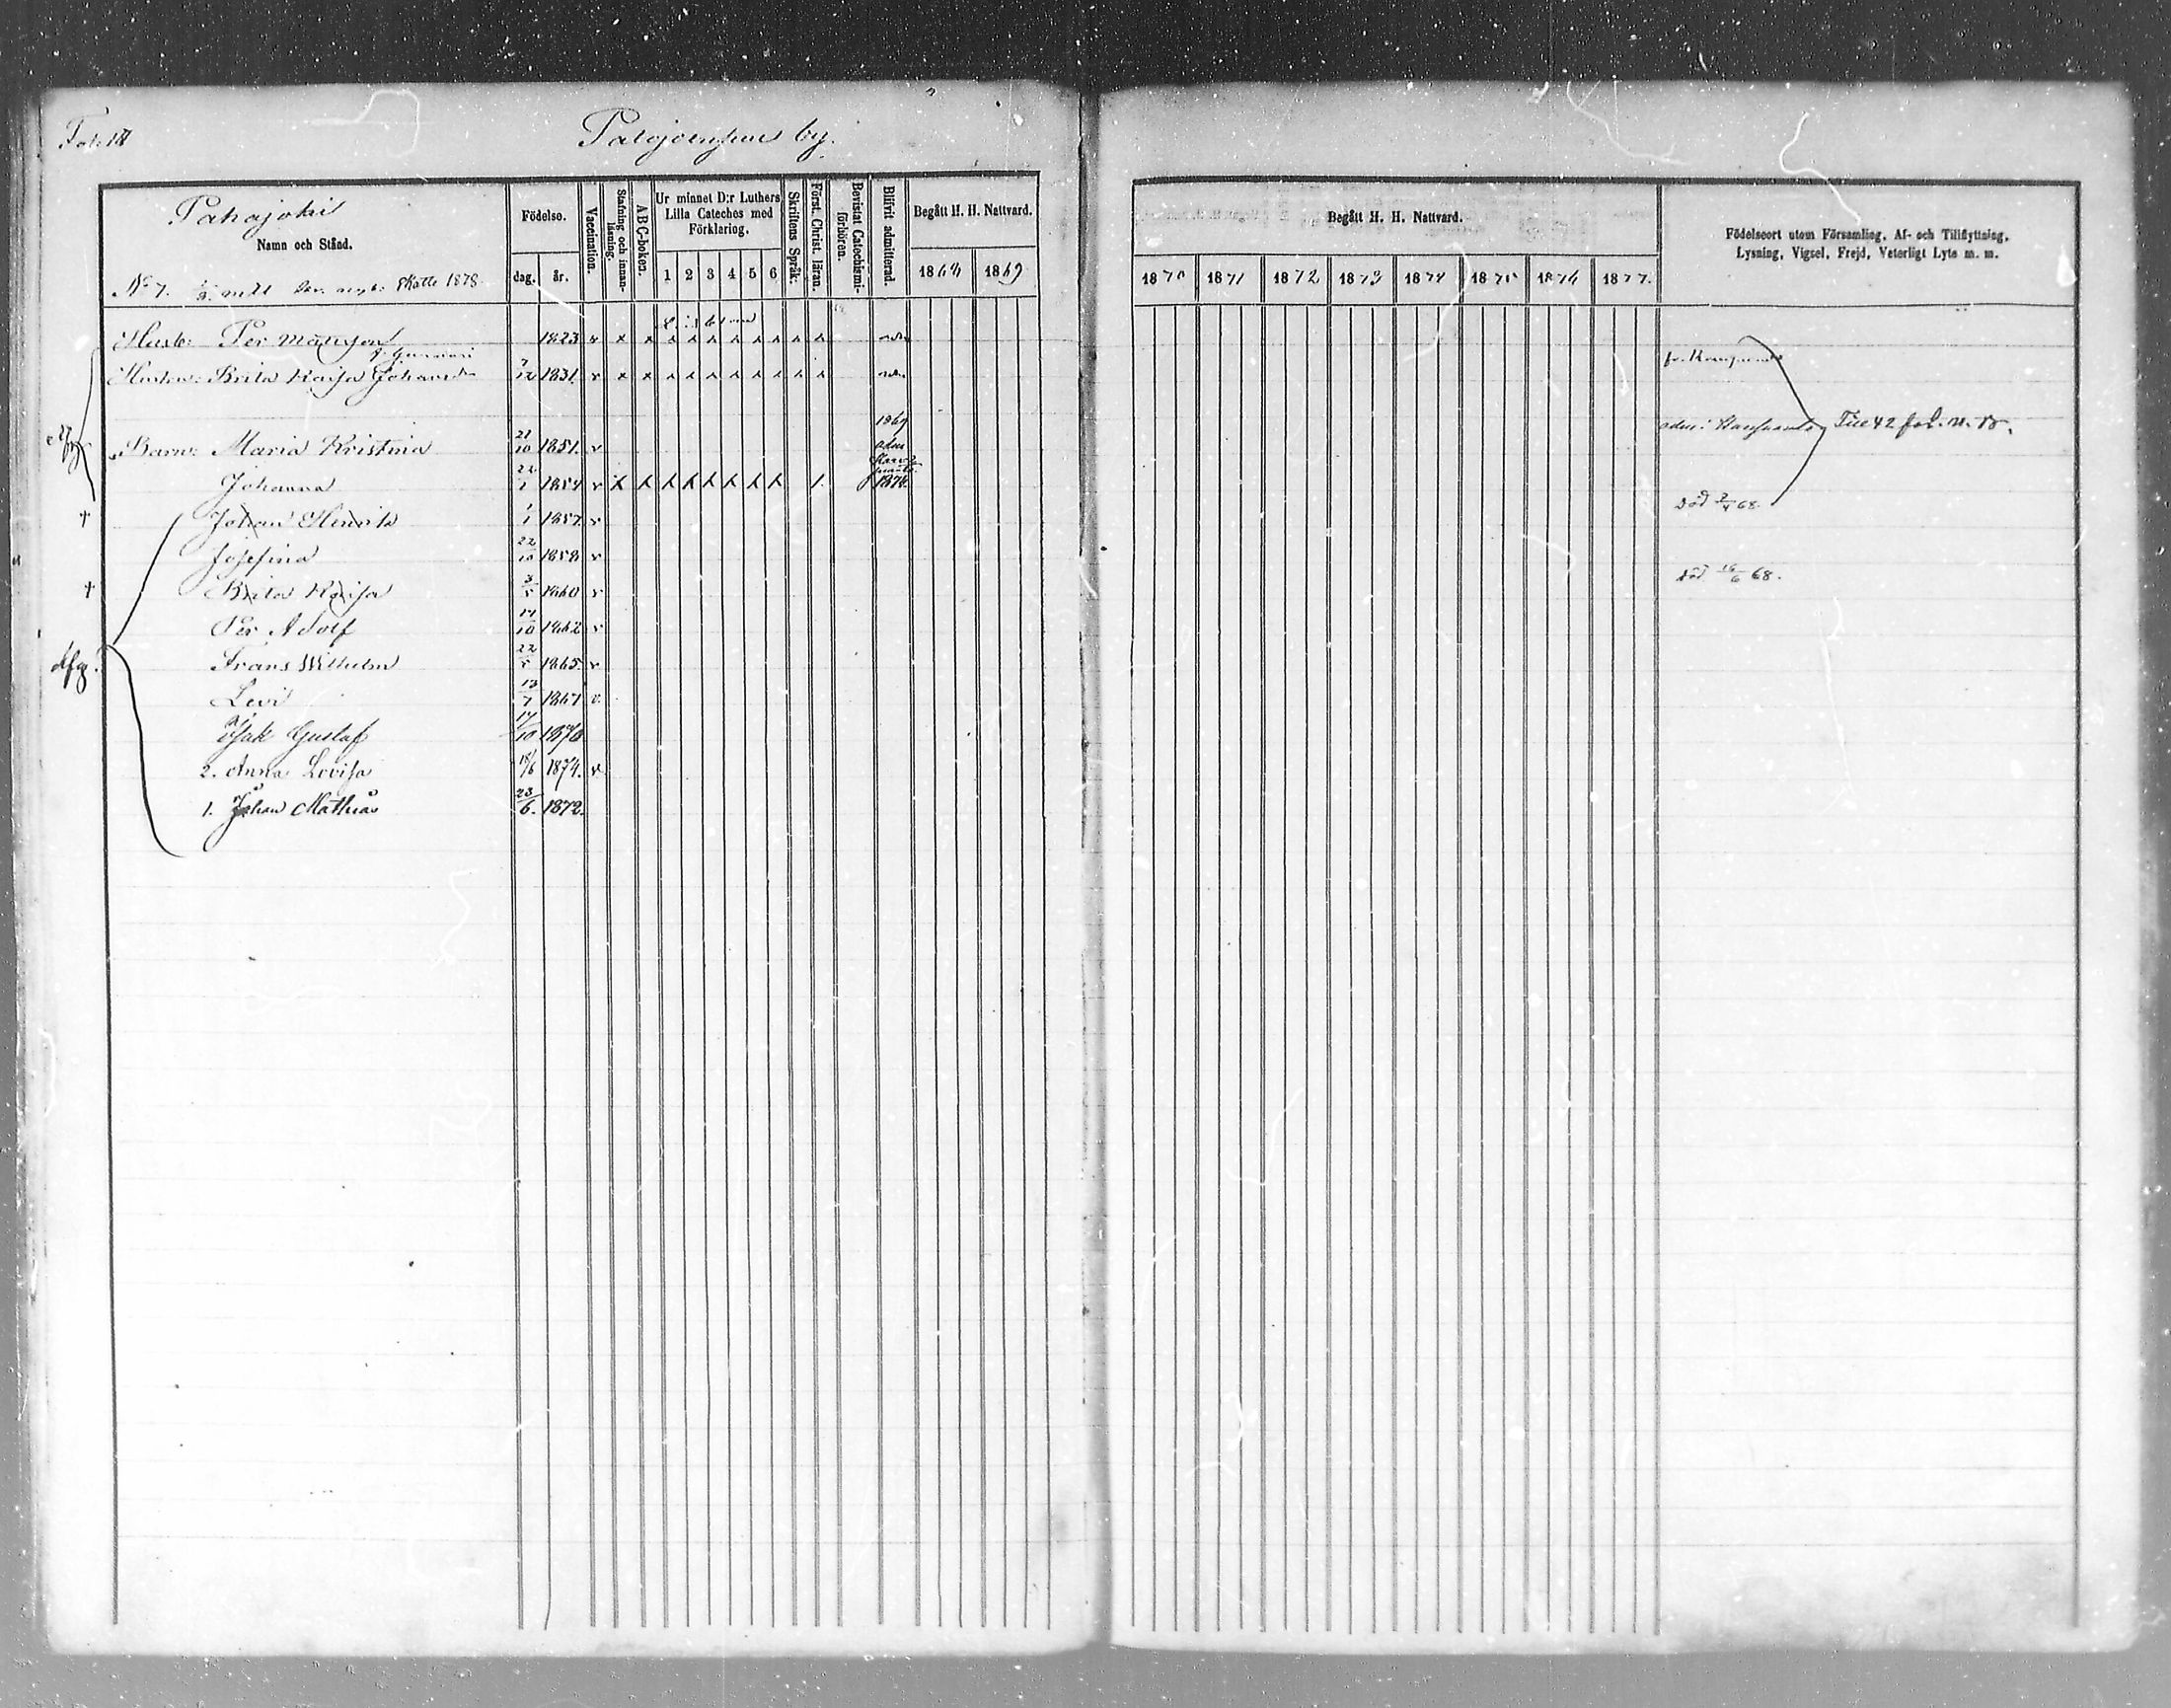 Fol. 18
Palojoensuu by.
Pahajoki
Namn och Stånd.
Födelse.
dag. år.
Vaccination.
Stafning och innanläsning.
A B C-boken.
Ur minnet D:r Luthers Lilla Cateches med Förklaring.
1 2 3 4 5 6
Skriftens Språk.
Först. Christ. läran.
Bevistat Catechismiförhören.
Blifvit admitterad.
Begått H. H. Nattvard.
1868 1869
Begått H. H. Nattvard.
1870 1871 1872 1873 1874 1875 1876 1877.
Födelseort utom Församling, Af- och Tillflyttning, Lysning, Vigsel, Frejd, Veterligt Lyte m. m.
No 7. mtl Skatte 1878.
Husb: Per Månsson 1823 v x x
Hustru: Brita Kaisa Johansdr 7/12 1831. v x x
Barn: Maria Kristina 21/10 1851. v 1869 adm
Til 42 fol. n. B.
Johanna 22/1 1854 v x 1. 1874.
† Johan Henrik 1/1 1857. v död 2/4 68
Josefina 22/10 1858. v
† Brita Kaisa 3/5 1860 v död 16/6 68.
Per Adolf 14/10 1862 v
afg. Frans Wilhelm 22/5 1865. v
Levi 13/7 1867 v.
Isak Gustaf 14/10 1870
2. Anna Lovisa 18/6 1874. v
1. Johan Mathias 23/6. 1872.